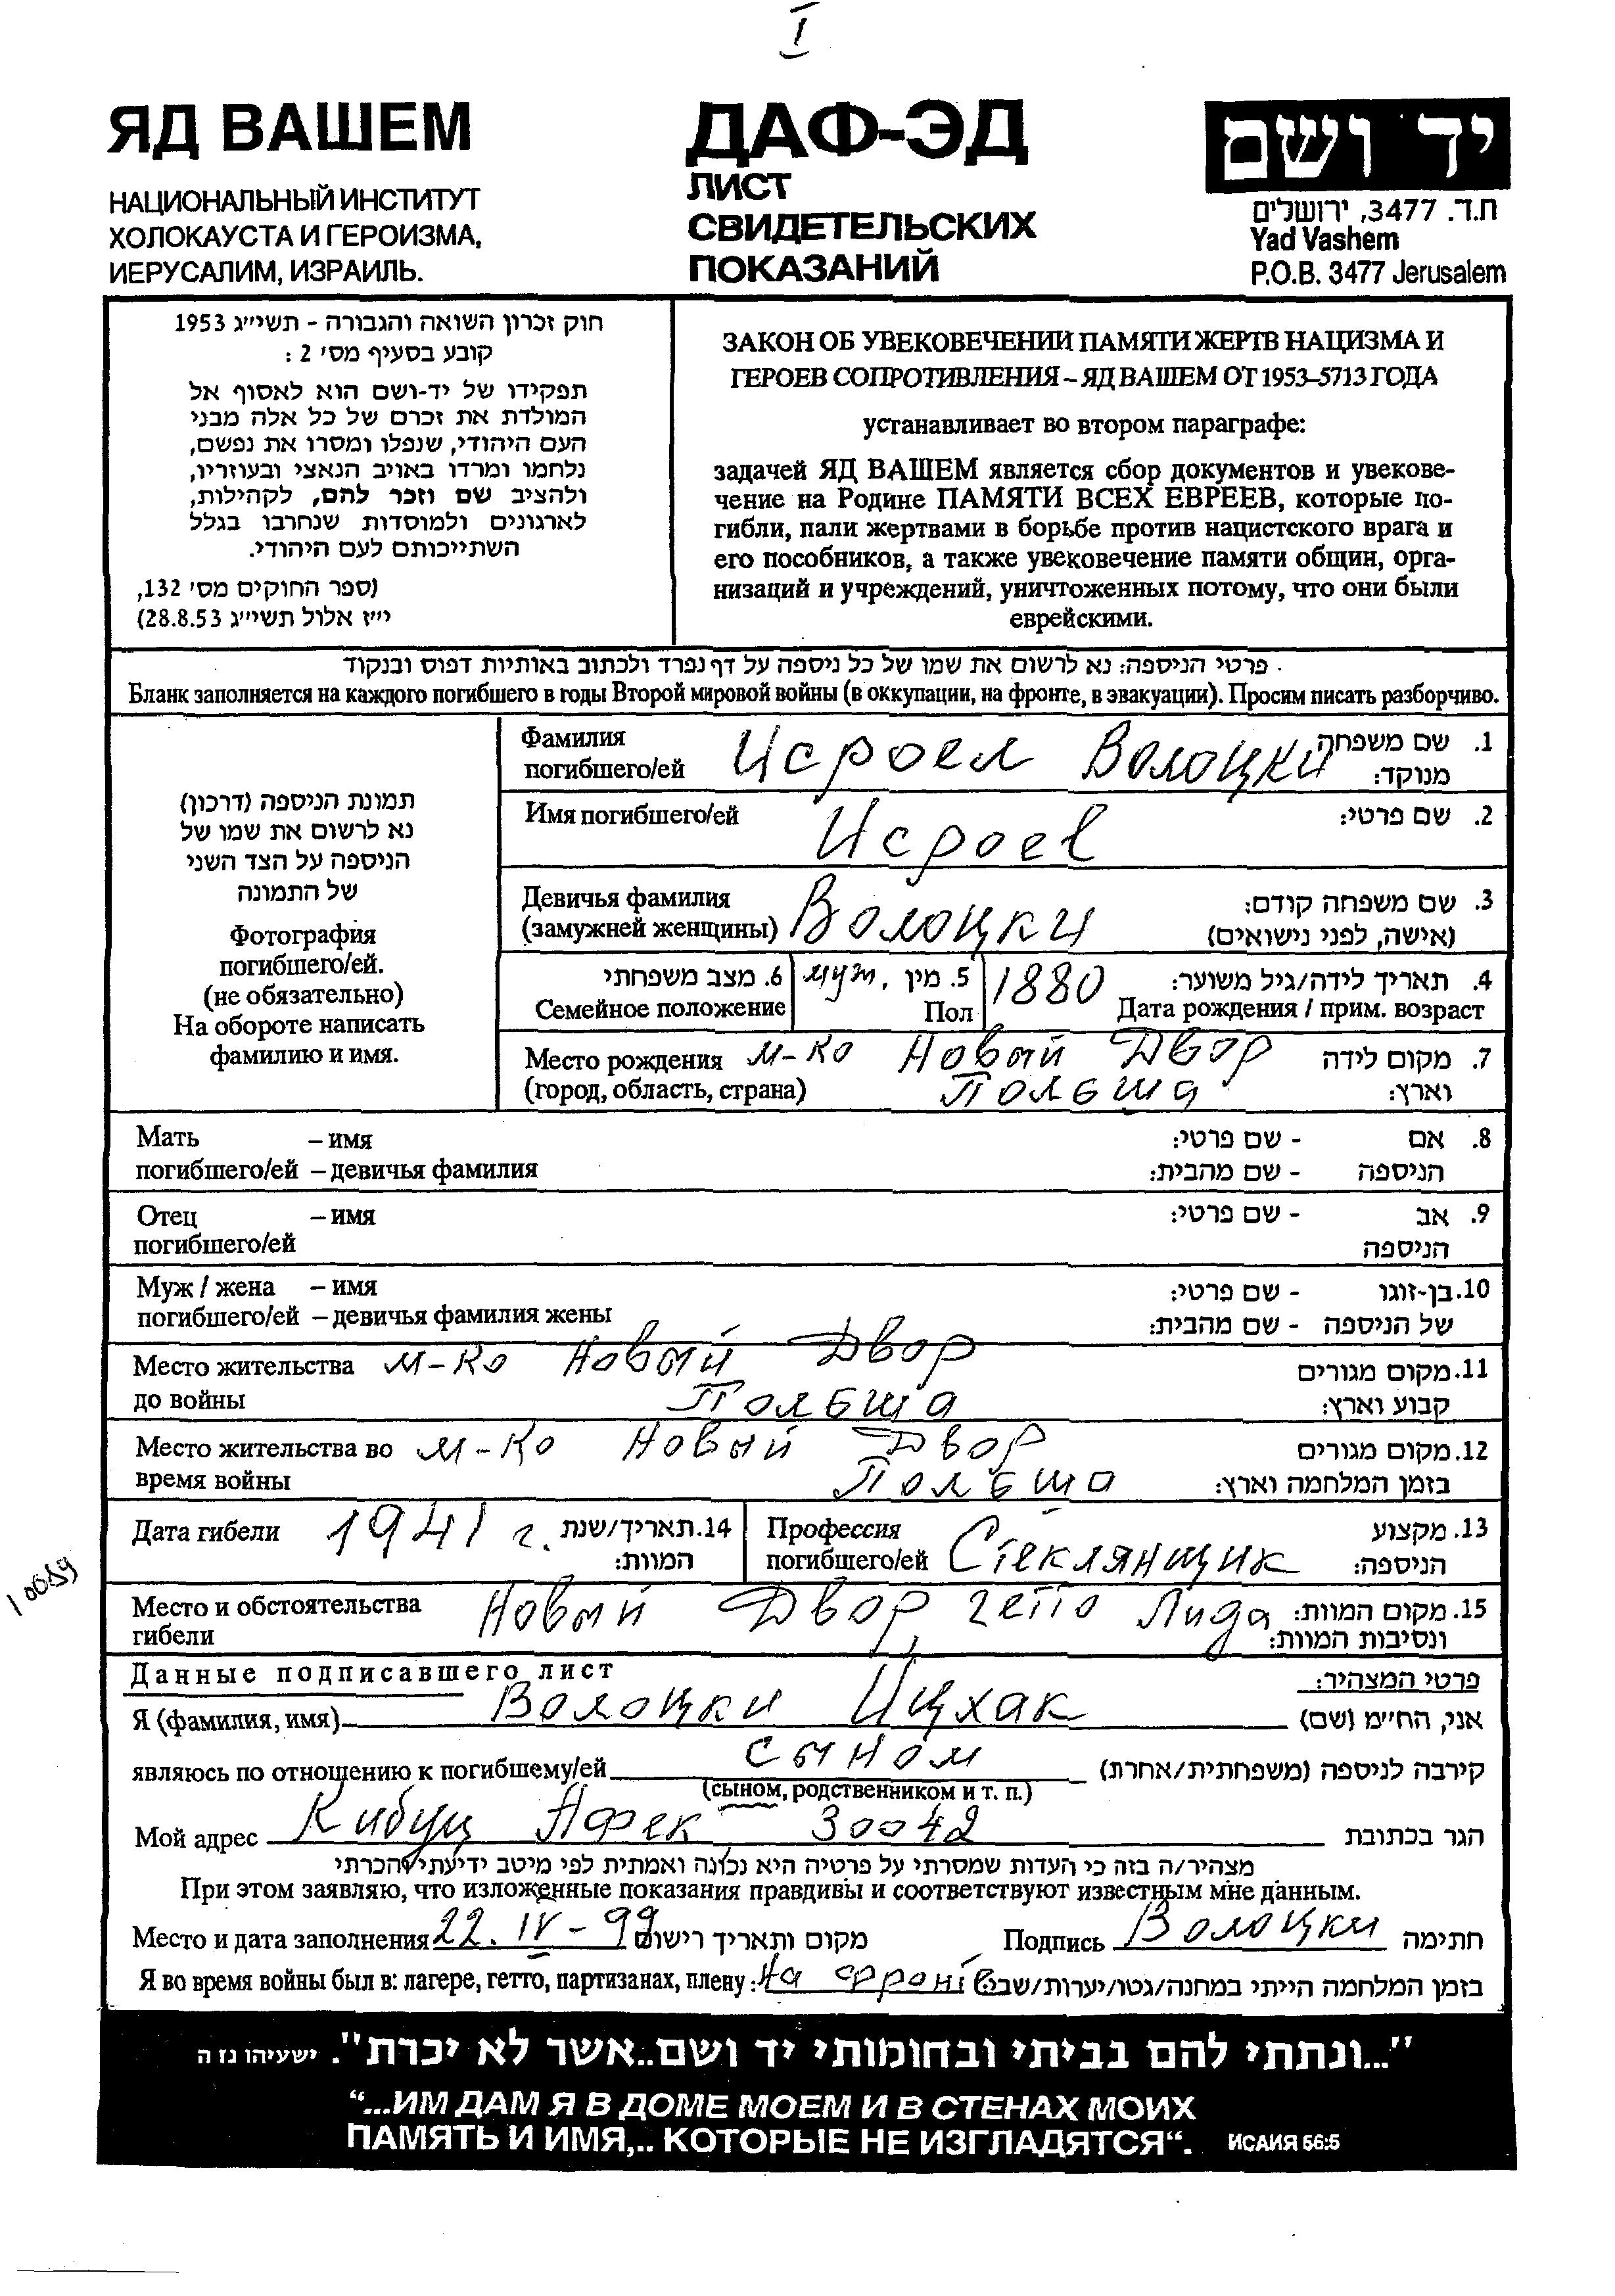 I
ЯД ВАШЕМ
НАЦИОНАЛЬНЫЙ ИНСТИТУТ
ХОЛОКАУСТА И ГЕРОИЗМА,
ИЕРУСАЛИМ, ИЗРАИЛЬ.
ДАФ-ЭД
ЛИСТ
СВИДЕТЕЛЬСКИХ
ПОКАЗАНИЙ
יד ושם
ת.ד. 3477, ירושלים
Yad Vashem
P.O.B. 3477 Jerusalem
חוק זכרון השואה והגבורה - תשי״ג 1953
קובע בסעיף מס׳ 2 :
תפקידו של יד-ושם הוא לאסוף אל
המולדת את זכרם של כל אלה מבני
העם היהודי, שנפלו ומסרו את נפשם,
נלחמו ומרדו באויב הנאצי ובעוזריו,
ולהציב שם וזכר להם, לקהילות,
לארגונים ולמוסדות שנחרבו בגלל
השתייכותם לעם היהודי.
(ספר החוקים מס׳ 132,
י״ז אלול תשי״ג 28.8.53)
ЗАКОН ОБ УВЕКОВЕЧЕНИИ ПАМЯТИ ЖЕРТВ НАЦИЗМА И
ГЕРОЕВ СОПРОТИВЛЕНИЯ – ЯД ВАШЕМ ОТ 1953–5713 ГОДА
устанавливает во втором параграфе:
задачей ЯД ВАШЕМ является сбор документов и увекове-
чение на Родине ПАМЯТИ ВСЕХ ЕВРЕЕВ, которые по-
гибли, пали жертвами в борьбе против нацистского врага и
его пособников, а также увековечение памяти общин, орга-
низаций и учреждений, уничтоженных потому, что они были
еврейскими.
פרטי הניספה: נא לרשום את שמו של כל ניספה על דף נפרד ולכתוב באותיות דפוס ובנקוד
Бланк заполняется на каждого погибшего в годы Второй мировой войны (в оккупации, на фронте, в эвакуации). Просим писать разборчиво.
תמונת הניספה (דרכון)
נא לרשום את שמו של
הניספה על הצד השני
של התמונה
Фотография
погибшего/ей.
(не обязательно)
На обороте написать
фамилию и имя.
Фамилия Исроел Волоцки 1. שם משפחה
погибшего/ей מנוקד:
Имя погибшего/ей Исроел 2. שם פרטי:
Девичья фамилия Волоцки 3. שם משפחה קודם:
(замужней женщины) (אישה, לפני נישואים)
6. מצב משפחתי муж. 5. מין 1880 4. תאריך לידה/גיל משוער:
Семейное положение Пол Дата рождения / прим. возраст
Место рождения м-ко Новый Двор 7. מקום לידה
(город, область, страна) Польша וארץ:
Мать – имя - שם פרטי: 8. אם
погибшего/ей – девичья фамилия - שם מהבית: הניספה
Отец – имя - שם פרטי: 9. אב
погибшего/ей הניספה
Муж / жена – имя - שם פרטי: 10. בן-זוגו
погибшего/ей – девичья фамилия жены - שם מהבית: של הניספה
Место жительства м-ко Новый Двор 11. מקום מגורים
до войны Польша קבוע וארץ:
Место жительства во м-ко Новый Двор 12. מקום מגורים
время войны Польша בזמן המלחמה וארץ:
Дата гибели 1941 г. 14. תאריך/שנת
המוות:
Профессия Стеклянщик 13. מקצוע
погибшего/ей הניספה:
Место и обстоятельства Новый Двор, гетто Лида 15. מקום המוות:
гибели ונסיבות המוות:
Данные подписавшего лист פרטי המצהיר:
Я (фамилия, имя) Волоцки Ицхак אני, הח״מ (שם)
являюсь по отношению к погибшему/ей сыном קירבה לניספה (משפחתית/אחרת)
(сыном, родственником и т. п.)
Мой адрес Кибуц Афек 30042 הגר בכתובת
מצהיר/ה בזה כי העדות שמסרתי על פרטיה היא נכונה ואמתית לפי מיטב ידיעתי והכרתי
При этом заявляю, что изложенные показания правдивы и соответствуют известным мне данным.
Место и дата заполнения 22. IV - 99 מקום ותאריך רישום Подпись Волоцки חתימה
Я во время войны был в: лагере, гетто, партизанах, плену: на фронте בזמן המלחמה הייתי במחנה/גטו/יערות/שבי:
"...ונתתי להם בביתי ובחומותי יד ושם..אשר לא יכרת". ישעיהו נז ה
“...ИМ ДАМ Я В ДОМЕ МОЕМ И В СТЕНАХ МОИХ
ПАМЯТЬ И ИМЯ,.. КОТОРЫЕ НЕ ИЗГЛАДЯТСЯ“. ИСАИЯ 56:5